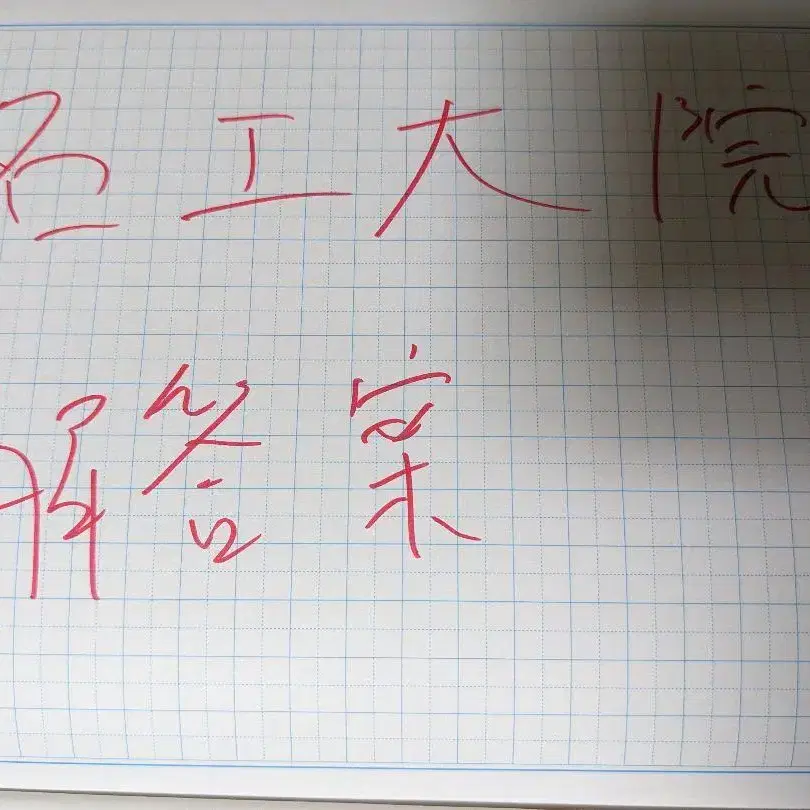 工大院
解答案